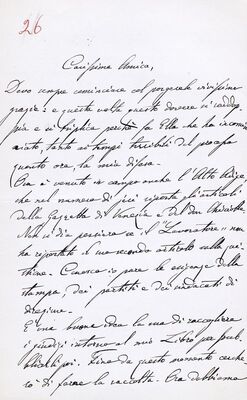 26
Carissima Amica,
Devo sempre cominciare col porgerle vivissime
grazie: e questa volta questo dovere si raddop-
pia e si triplica perchè fu Ella che ha incomin-
ciato, tanto ai tempi terribili del processo
quanto ora, la mia difesa.
Ora è venuto in campo anche l'Alto Adige,
che nel numero di jeri riporta gli articoli
della Gazzetta di Venezia e del Don Chisciotte
Non si dia pensiero se il "Lavoratore" non
ha riportato il suo secondo articolo sulla
Conosco io pure le esigenze della
stampa, dei partiti e dei sindacati di
direzione.
È una buona idea la sua di raccogliere
i giudizi intorno al mio Libro per pub-
blicarli poi. Fino da questo momento cerche
rò di farne la raccolta. Ora dobbiamo